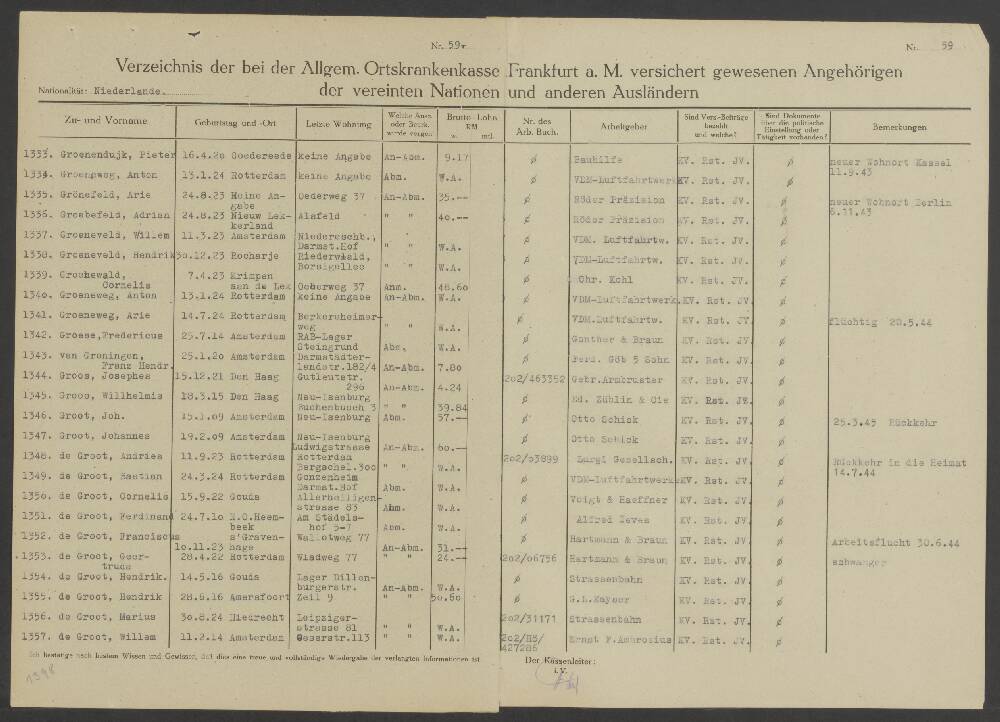 Nr. 59r
Nr. 59
Verzeichnis der bei der Allgem. Ortskrankenkasse Frankfurt a. M. versichert gewesenen Angehörigen
Nationalität: Niederlande.
der vereinten Nationen und anderen Ausländern
Zu- und Vorname Geburtstag und -Ort Letzte Wohnung Welche Ausw. oder Beurk. wurde vorgen. Brutto-Lohn RM w. mtl. Nr. des Arb. Buch. Arbeitgeber Sind Vers-Beiträge bezahlt und welche? Sind Dokumente über die politische Einstellung oder Tätigkeit vorhanden? Bemerkungen
1333. Groenendujk, Pieter 16.4.20 Goedereede keine Angabe An-Abm. 9.17 ø Bauhilfe KV. Rst. JV. ø neuer Wohnort Kassel
11.9.43
1334. Groeneweg, Anton 13.1.24 Rotterdam keine Angabe Abm. W.A. ø VDM-Luftfahrtwerk KV. Rst. JV. ø
1335. Grönefeld, Arie 24.8.23 Keine An- Oederweg 37 An-Abm. 35.-- ø Röder Präzision KV. Rst. JV. ø neuer Wohnort Berlin
gabe 6.11.43
1336. Groebefeld, Adrian 24.8.23 Nieuw Lek- Alsfeld " " 40.-- ø Röder Präzision KV. Rst. JV. ø
kerland
1337. Groeneveld, Willem 11.3.23 Amsterdam Niedereschb., ø VDM. Luftfahrtw. KV. Rst. JV. ø
Darmst.Hof " " W.A.
1338. Groeneveld, Hendrik 30.12.23 Rocharje Riederwald, ø VDM-Luftfahrtw. KV. Rst. JV. ø
Borsigallee " " W.A.
1339. Groenewald, 7.4.23 Krimpen ø Chr. Kohl KV. Rst. JV. ø
Cornelis aan de Lek Oeberweg 37 Anm. 48.60
1340. Groeneweg, Anton 13.1.24 Rotterdam keine Angabe An-Abm. W.A. ø VDM-Luftfahrtwerk. KV. Rst. JV. ø
1341. Groeneweg, Arie 14.7.24 Rotterdam Berkersheimer- ø VDM.Luftfahrtw. KV. Rst. JV. ø flüchtig 20.5.44
weg " " W.A.
1342. Groese, Fredericus 25.7.14 Amsterdam RAB-Lager ø Günther & Braun KV. Rst. JV. ø
Steingrund Abm. W.A.
1343. van Groningen, 25.1.20 Amsterdam Darmstädter- ø Ferd. Göb & Sohn KV. Rst. JV. ø
Franz Hendr. landstr.182/4 An-Abm. 7.80
1344. Groos, Josephes 15.12.21 Den Haag Gutleutstr. 202/463352 Gebr.Armbruster KV. Rst. JV. ø
296 An-Abm. 4.24
1345. Groos, Willhelmis 18.3.15 Den Haag Neu-Isenburg ø Ed. Züblin & Cie KV. Rst. JV. ø
Buchenbusch 3 " " 39.84
1346. Groot, Joh. 15.1.09 Amsterdam Neu-Isenburg Abm. 57.-- ø Otto Schick KV. Rst. JV. ø 25.3.45 Rückkehr
1347. Groot, Johannes 19.2.09 Amsterdam Neu-Isenburg ø Otto Schick KV. Rst. JV. ø
Ludwigstrasse An-Abm. 60.--
1348. de Groot, Andries 11.9.23 Rotterdam Rotterdam 202/03899 Lurgi Gesellsch. KV. Rst. JV. ø Rückkehr in die Heimat
Bergschel.300 " " W.A. 14.7.44
1349. de Groot, Bastian 24.3.24 Rotterdam Gonzenheim ø VDM-Luftfahrtwerk KV. Rst. JV. ø
Darmst.Hof Abm. W.A.
1350. de Groot, Cornelis 15.9.22 Gouda Allerheiligen- ø Voigt & Haeffner KV. Rst. JV. ø
strasse 83 Abm. W.A.
1351. de Groot, Ferdinand 24.7.10 N.O.Heem- Am Städels- ø Alfred Teves KV. Rst. JV. ø
beek hof 5-7 Abm. W.A.
1352. de Groot, Franciscus s'Graven- Wallotweg 77 ø Hartmann & Braun KV. Rst. JV. ø Arbeitsflucht 30.6.44
10.11.23 hage An-Abm. 31.--
1353. de Groot, Geer- 28.4.22 Rotterdam Wladweg 77 " " 24.-- 202/06756 Hartmann & Braun KV. Rst. JV. ø schwanger
truda
1354. de Groot, Hendrik. 14.5.16 Gouda Lager Dillen- ø Strassenbahn KV. Rst. JV. ø
burgerstr. An-Abm. W.A.
1355. de Groot, Hendrik 28.6.16 Amersfoort Zeil 9 " " 50.80 ø G.L.Kayser KV. Rst. JV. ø
1356. de Groot, Marius 30.8.24 Sliedrecht Leipziger- 202/31171 Strassenbahn KV. Rst. JV. ø
strasse 81 " " W.A.
1357. de Groot, Willem 11.2.14 Amsterdam Oeserstr.113 " " W.A. 202/HB/ Ernst F.Ambrosius KV. Rst. JV. ø
427286
Ich bestätige nach bestem Wissen und Gewissen, daß dies eine treue und vollständige Wiedergabe der verlangten Informationen ist
Der Kassenleiter:
i.V.
1398